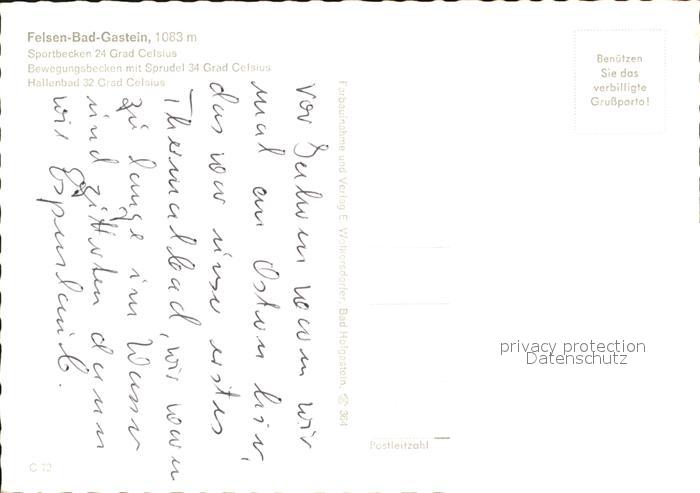 Felsen-Bad-Gastein, 1083 m
Sportbecken 24 Grad Celsius
Bewegungsbecken mit Sprudel 34 Grad Celsius
Hallenbad 32 Grad Celsius
Benützen
Sie das
verbilligte
Grußporto!
vor Jahren waren wir
mal an Ostern hier,
das war unser erstes
Thermalbad, wir waren
zu lange im Wasser
und zitterten dann
wie Espenlaub.
Farbaufnahme und Verlag E. Wolkersdorfer, Bad Hofgastein, 364
privacy protection
Datenschutz
Postleitzahl
C 72